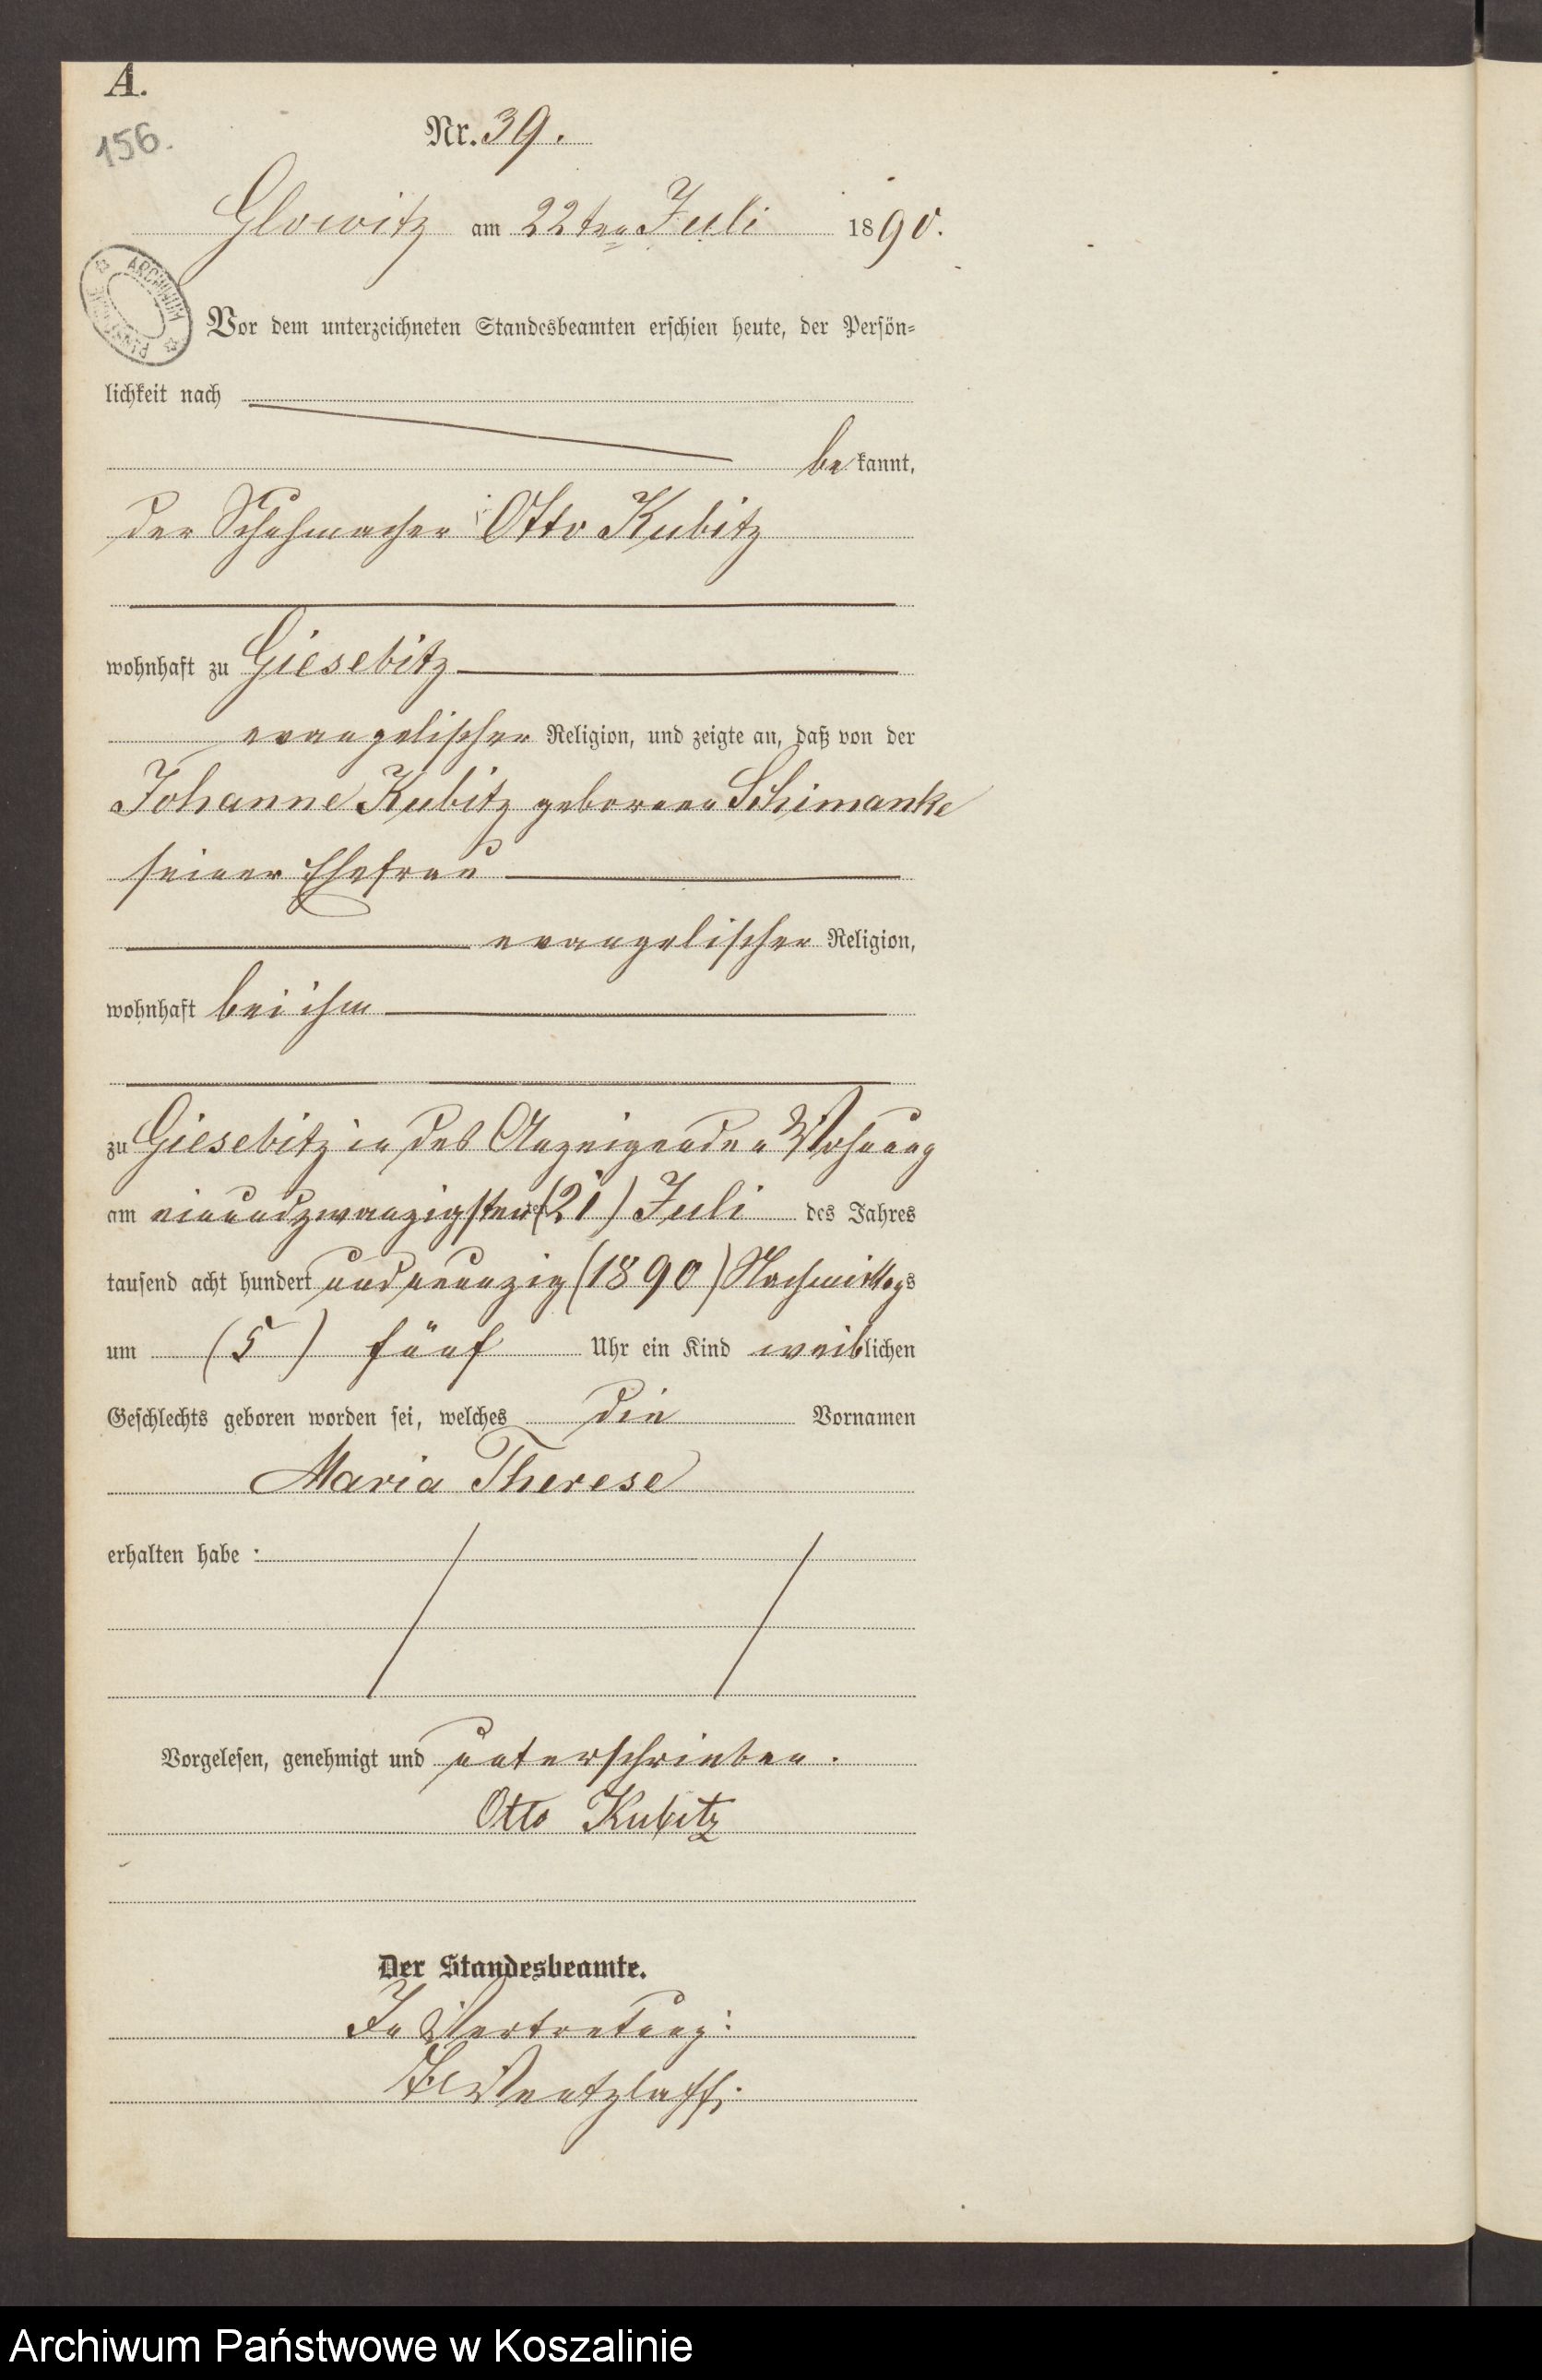 A.
156.
Nr. 39.
Glowitz am 22ten Juli 1890.
ARCHIWUM PAŃSTWOWE
Vor dem unterzeichneten Standesbeamten erschien heute, der Persön-
lichkeit nach
bekannt,
der Schuhmacher Otto Kubitz
wohnhaft zu Giesebitz
evangelischer Religion, und zeigte an, daß von der
Johanne Kubitz geborenen Schimanke
seiner Ehefrau
evangelischer Religion,
wohnhaft bei ihm
zu Giesebitz in des Anzeigenden Wohnung
am einundzwanzigsten ten (21) Juli des Jahres
tausend acht hundert und neunzig (1890) Nachmittags
um (5) fünf Uhr ein Kind weiblichen
Geschlechts geboren worden sei, welches die Vornamen
Maria Therese
erhalten habe.
Vorgelesen, genehmigt und unterschrieben.
Otto Kubitz
Der Standesbeamte.
In Vertretung:
Wentzlaff.
Archiwum Państwowe w Koszalinie